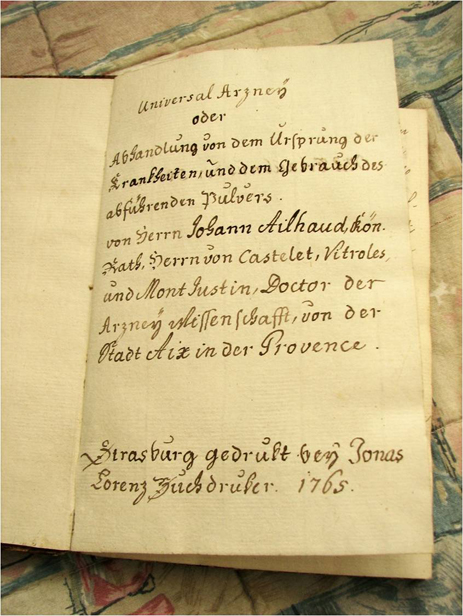 Universal Arzneÿ
oder
Abhandlung von dem Ursprung der
Krankheiten, und dem Gebrauch des
abführenden Pulvers.
von Herrn Johann Ailhaud, Kön.
Rath, Herrn von Castelet, Vitroles,
und Mont Justin, Doctor der
Arzneÿ Wissenschafft, von der
Stadt Aix in der Provence.
Strasburg gedrukt beÿ Jonas
Lorenz Buchdruker. 1765.